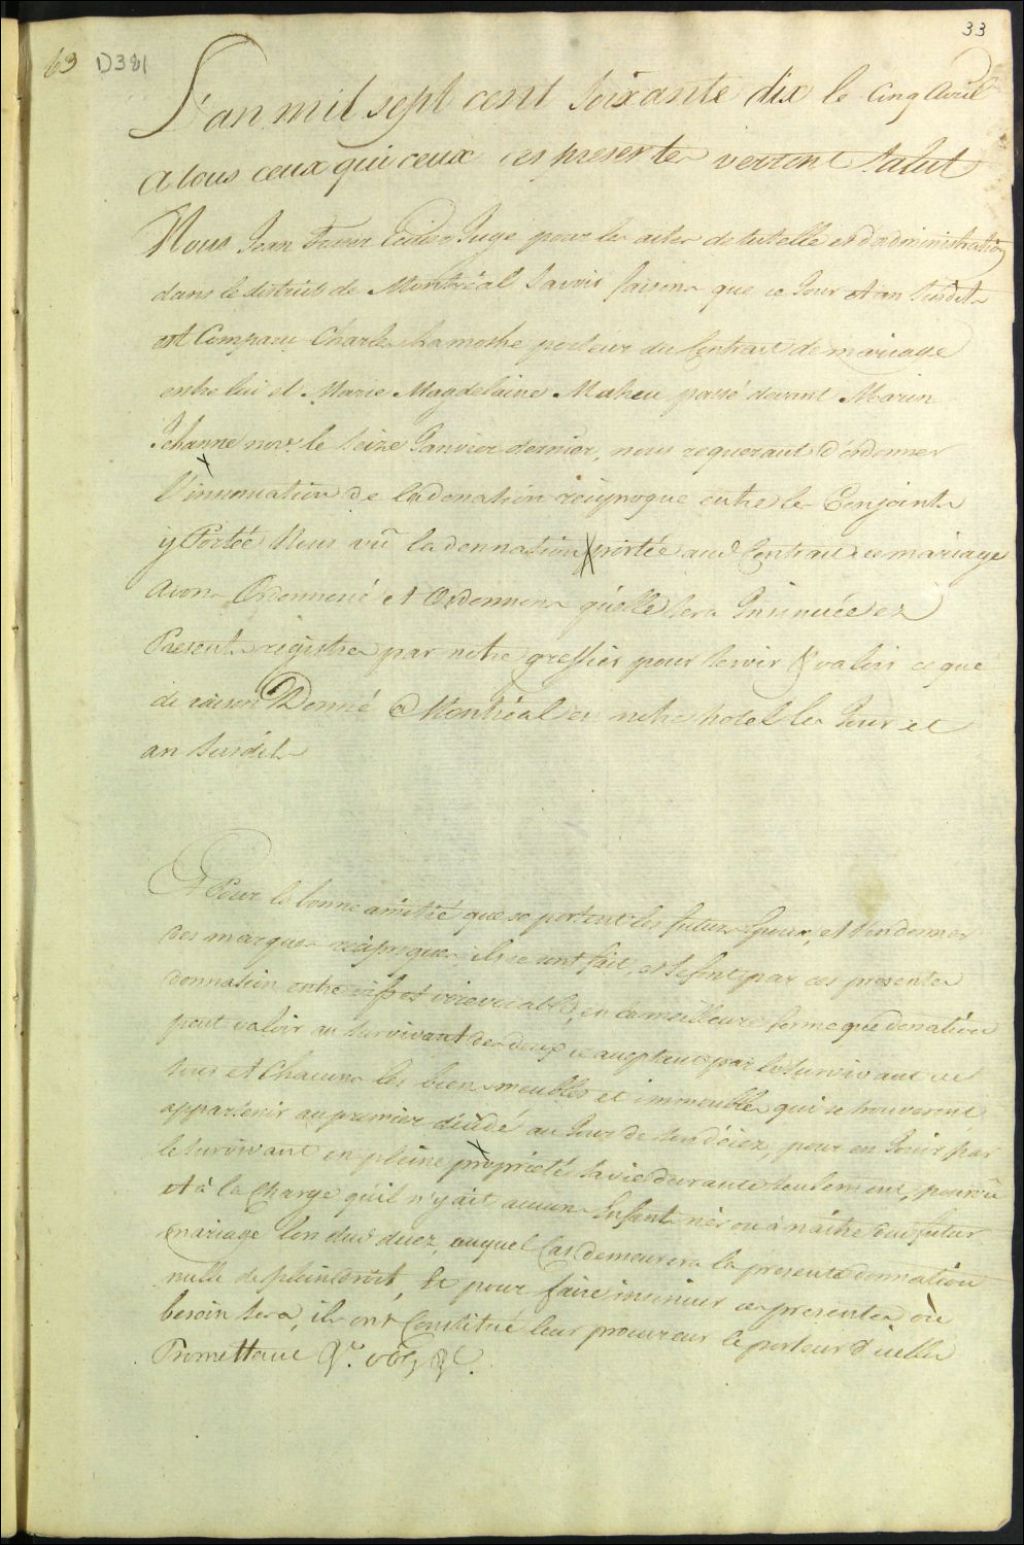 33
63 D381
L'an mil sept cent soixante dix le Cinq Avril
A tous ceux qui ceux ces presentes verront Salut
Nous Jean Juge pour les actes de tutelle et d'administration
dans le district de Montréal savoir faisons que ce Jour et an susdits
est Comparu Charles Lamothe porteur du Contrat de mariage
entre lui et Marie Magdelaine Maheu passé devant Marin
Jehanne nore. le seize Janvier dernier, nous requerant d'ordonner
l'insinuation de la donation reciproque entre les Conjoints
y Portée Nous vû la donnation portée aud Contrat de mariage
Avons Ordonnené et Ordonnons qu'elle sera Insinuée ez
Presents registres par notre greffier pour servir & valoir ce que
de raison Donné a Montréal en notre hotel les Jour et
an susdits
Et Pour la bonne amitié que se portent les futurs Epoux, et s'en donner
des marques reciproques, ils se sont fait, et se font par ces presentes
donnation entre vifs et irrevocable, en la meilleure forme que donation
peut valoir au survivant des deux ce acceptant par le survivant de
tous et Chacuns les biens meubles et immeubles qui se trouveront
appartenir au premier décédé au Jour de son décez, pour en Jouir par
le survivant en pleine propriété sa vie durante seulement, pourvû
et à la Charge qu'il n'y ait aucuns Enfants nés ou à naitre dud futur
mariage lors dud decez, auquel Cas demeurera la presente donnation
nulle de plein droit, Et pour faire insinuer ces presentes où
besoin sera, ils ont Constitué leur procureur le porteur d'icelles
Promettant &a. oblig &c.